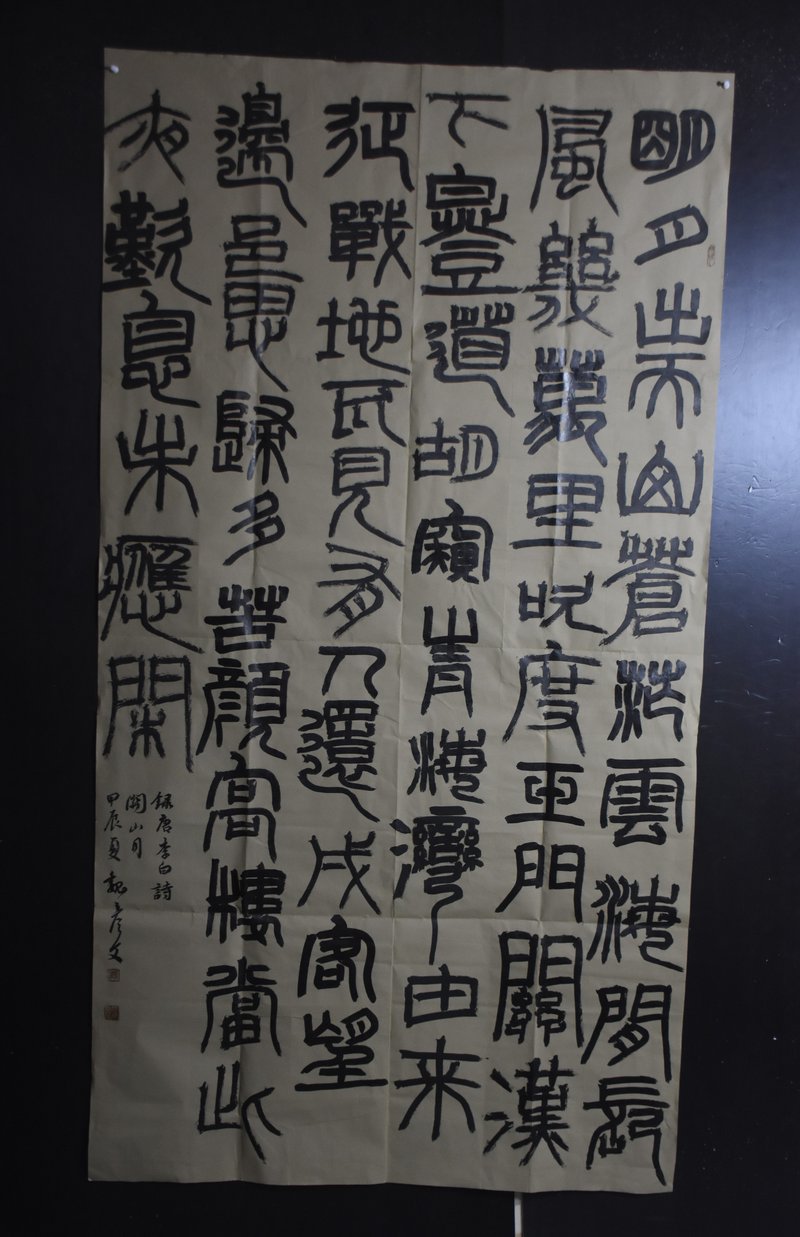 明月出天山蒼茫雲海間長
風幾萬里吹度玉門關漢
下白登道胡窺青海灣由来
征戰地不見有人還戍客望
邊邑思歸多苦顏高樓當此
夜歎息未應閑
録唐李白詩
関山月
甲辰夏 魏彥文